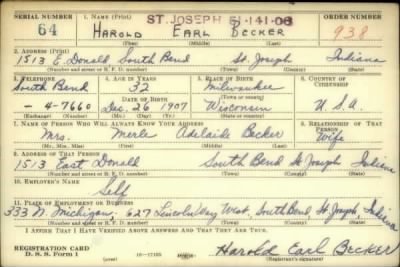 SERIAL NUMBER 1. NAME (Print) ST. JOSEPH 51-141-06 ORDER NUMBER
64 HAROLD EARL BECKER 938
(First) (Middle) (Last)
2. ADDRESS (Print)
1513 E. Donald South Bend St. Joseph Indiana
(Number and street or R. F. D. number) (Town) (County) (State)
3. TELEPHONE 4. AGE IN YEARS 5. PLACE OF BIRTH 6. COUNTRY OF CITIZENSHIP
South Bend 32 Milwaukee
DATE OF BIRTH (Town or county)
-4-7660 Dec. 26 1907 Wisconsin U.S.A.
(Exchange) (Number) (Mo.) (Day) (Yr.) (State or country)
7. NAME OF PERSON WHO WILL ALWAYS KNOW YOUR ADDRESS 8. RELATIONSHIP OF THAT PERSON
Mrs. Merle Adelaide Becker Wife
(Mr., Mrs., Miss) (First) (Middle) (Last)
9. ADDRESS OF THAT PERSON
1513 East Donald South Bend St Joseph Indiana
(Number and street or R. F. D. number) (Town) (County) (State)
10. EMPLOYER'S NAME
Self
11. PLACE OF EMPLOYMENT OR BUSINESS
333 N. Michigan, 627 Lincoln Way West, South Bend, St. Joseph, Indiana
(Number and street or R. F. D. number) (Town) (County) (State)
I AFFIRM THAT I HAVE VERIFIED ABOVE ANSWERS AND THAT THEY ARE TRUE.
REGISTRATION CARD
D. S. S. Form 1 16-17105 Harold Earl Becker
(Registrant's signature)